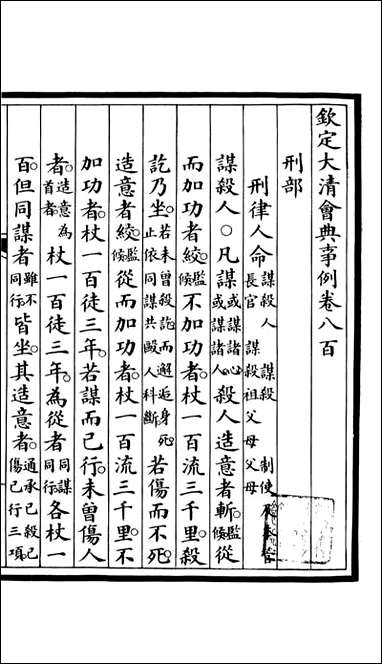 欽定大清會典事例卷八百
刑部
刑律人命謀殺人 謀殺制使及本管長官 謀殺祖父母父母
謀殺人○凡謀或謀諸心或謀諸人殺人造意者斬監候。從
而加功者絞監候。不加功者。杖一百流三千里。殺
訖乃坐。若未曾殺訖而邂逅身死止依同謀共毆人科斷若傷而不死。
造意者絞監候。從而加功者。杖一百流三千里。不
加功者。杖一百徒三年。若謀而已行。未曾傷人
者。造意為首者杖一百徒三年。為從者同謀同行各杖一
百。但同謀者雖不同行皆坐。其造意者。通承已殺已傷已行三項